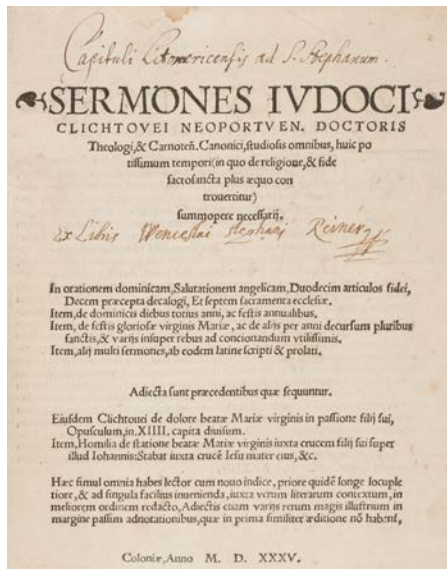 Capituli Litomericensis ad S. Stephanum.
SERMONES IVDOCI
CLICHTOVEI NEOPORTVEN. DOCTORIS
Theologi,& Carnoteñ. Canonici,studiosis omnibus, huic po
tissimum tempori(in quo de religione,& fide
sacrosancta plus æquo con
trouertitur)
summopere necessarij.
Ex Libris Wenceslai Stephani Reiner
In orationem dominicam,Salutationem angelicam,Duodecim articulos fidei,
Decem præcepta decalogi, Et septem sacramenta ecclesiæ.
Item,de dominicis diebus totius anni, ac festis annualibus.
Item, de festis gloriosæ virginis Mariæ, ac de alijs per anni decursum pluribus
sanctis,& varijs insuper rebus ad concionandum vtilissimis.
Item,alij multi sermones,ab eodem latine scripti & prolati.
Adiecta sunt præcedentibus quæ sequuntur.
Eiusdem Clichtouei de dolore beatæ Mariæ virginis in passione filij sui,
Opusculum,in,XIIII, capita diuisum.
Item,Homilia de statione beatæ Mariæ virginis iuxta crucem filij sui super
illud Iohannis:Stabat iuxta crucē Iesu mater eius, &c.
Hæc simul omnia habes lector cum nouo indice, priore quidē longe locuple
tiore,& ad singula facilius inuenienda,iuxta verum literarum contextum,in
meliorem ordinem redacto,Adiectis etiam varijs rerum magis illustrium in
margine passim adnotationibus,quæ in prima similiter æditione nō habent,
Coloniæ,Anno M. D. XXXV.